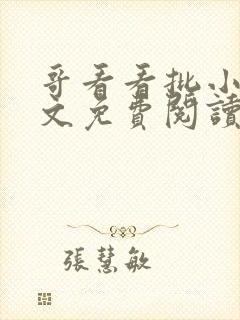 哥看看批小
文免費閱讀
張慧敏